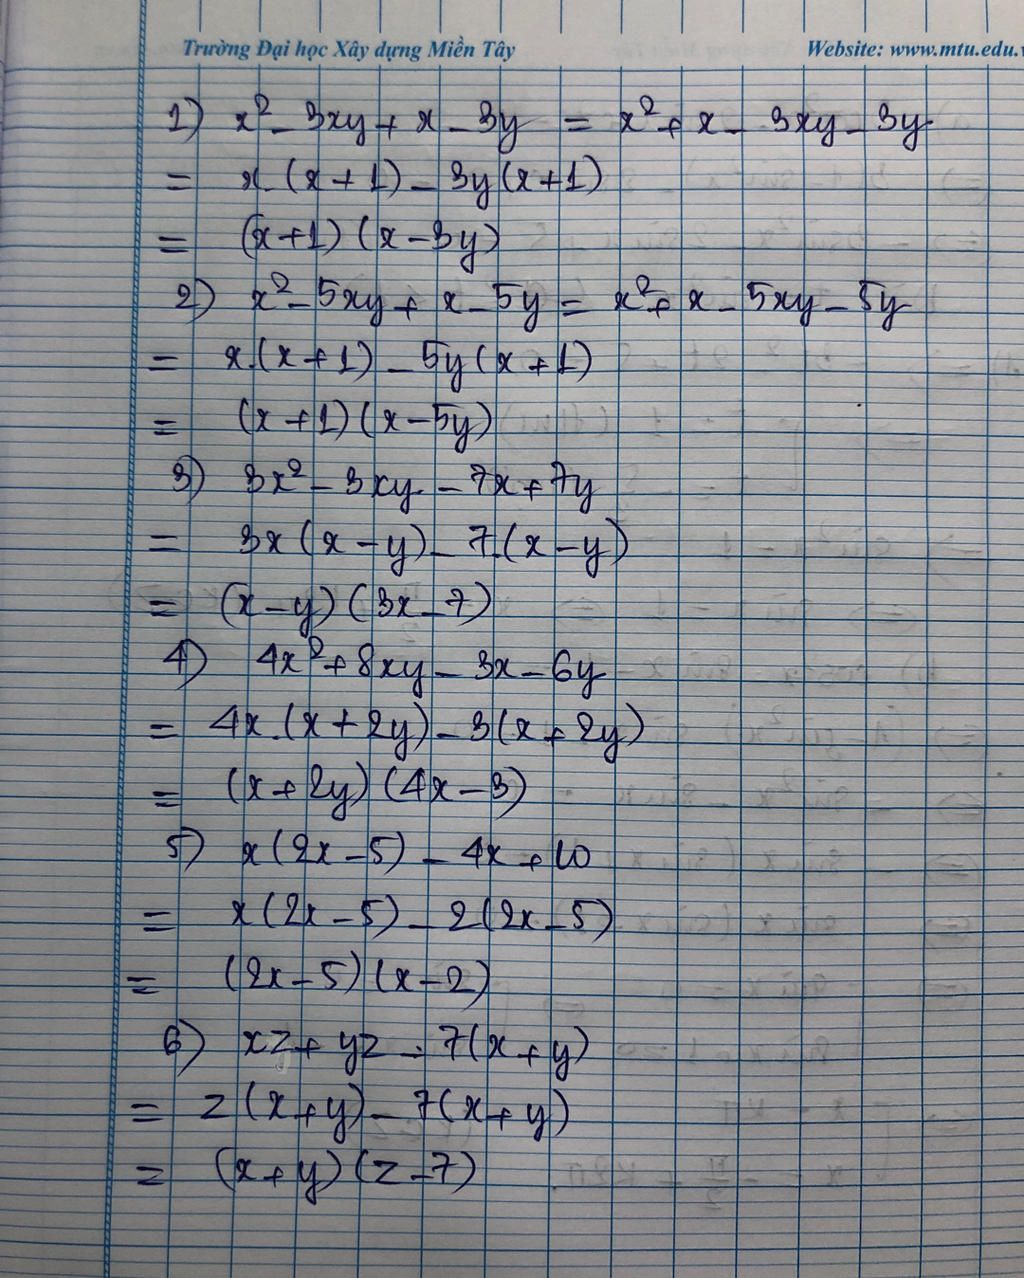 Trường Đại học Xây dựng Miền Tây Website: www.mtu.edu.v
1) x² - 3xy + x - 3y = x² + x - 3xy - 3y
= x.(x + 1) - 3y(x + 1)
= (x + 1)(x - 3y)
2) x² - 5xy + x - 5y = x² + x - 5xy - 5y
= x.(x + 1) - 5y(x + 1)
= (x + 1)(x - 5y)
3) 3x² - 3xy - 7x + 7y
= 3x(x - y) - 7.(x - y)
= (x - y)(3x - 7)
4) 4x² + 8xy - 3x - 6y
= 4x.(x + 2y) - 3(x + 2y)
= (x + 2y)(4x - 3)
5) x(2x - 5) - 4x + 10
= x(2x - 5) - 2(2x - 5)
= (2x - 5)(x - 2)
6) xz + yz - 7(x + y)
= z(x + y) - 7(x + y)
= (x + y)(z - 7)